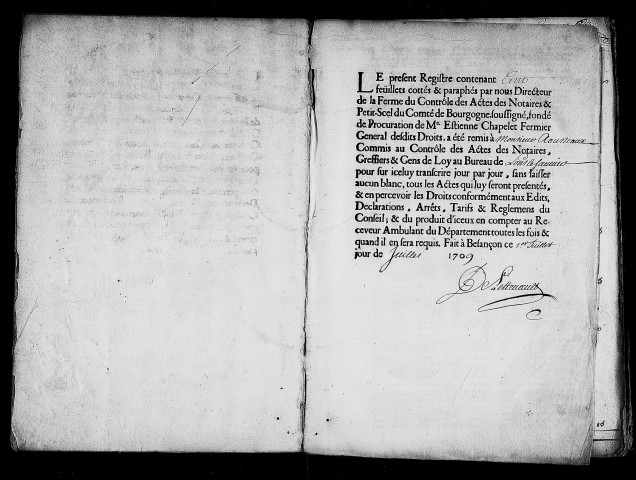 LE present Registre contenant Cent
feüillets cottés & paraphés par nous Directeur
de la Ferme du Contrôle des Actes des Notaires &
Petit-Scel du Comté de Bourgogne, soussigné, fondé
de Procuration de Me. Estienne Chapelet Fermier
General desdits Droits, a été remis à Monsieur
Commis au Contrôle des Actes des Notaires,
Greffiers & Gens de Loy au Bureau de
pour sur iceluy transcrire jour par jour, sans laisser
aucun blanc, tous les Actes qui luy seront presentés,
& en percevoir les Droits conformément aux Edits,
Declarations, Arrêts, Tarifs & Reglemens du
Conseil; & du produit d'iceux en compter au Re-
ceveur Ambulant du Département toutes les fois &
quand il en sera requis. Fait à Besançon ce 1er Juillet
jour de Juillet 1709